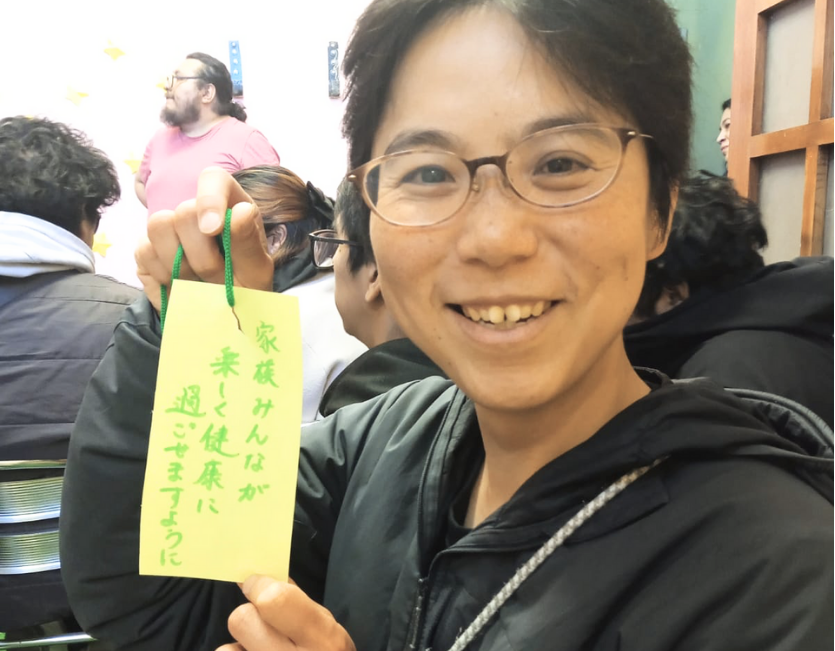 家族みんなが
楽しく健康に
過ごせますように